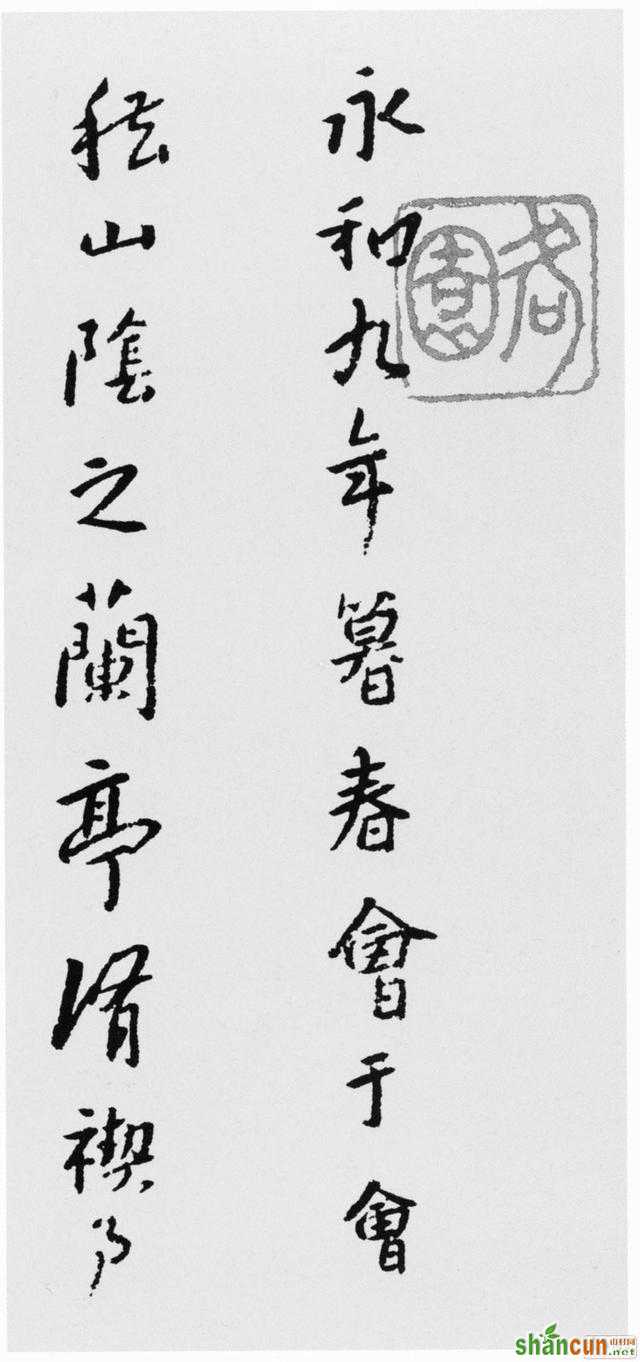 永和九年暮春會于會
稽山陰之蘭亭脩禊事
shancun
山村网
.net